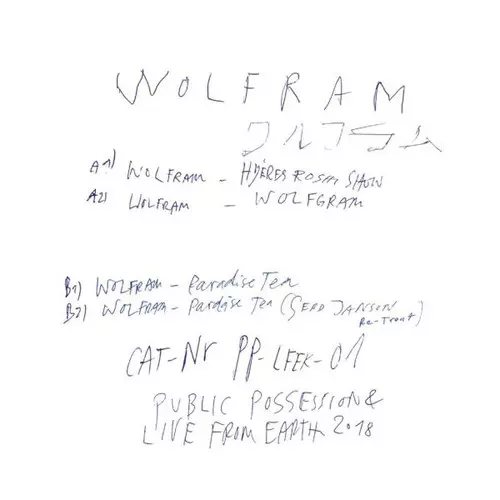 WOLFRAM
A1) WOLFRAM - HYÈRES ROSM SHOW
A2) WOLFRAM - WOLFGRAM
B1) WOLFRAM - Paradise Tea
B2) WOLFRAM - Paradise Tea (GERD JANSON
Re-Treat)
CAT-Nr PP-LFEK-01
PUBLIC POSSESSION &
LIVE FROM EARTH 2018